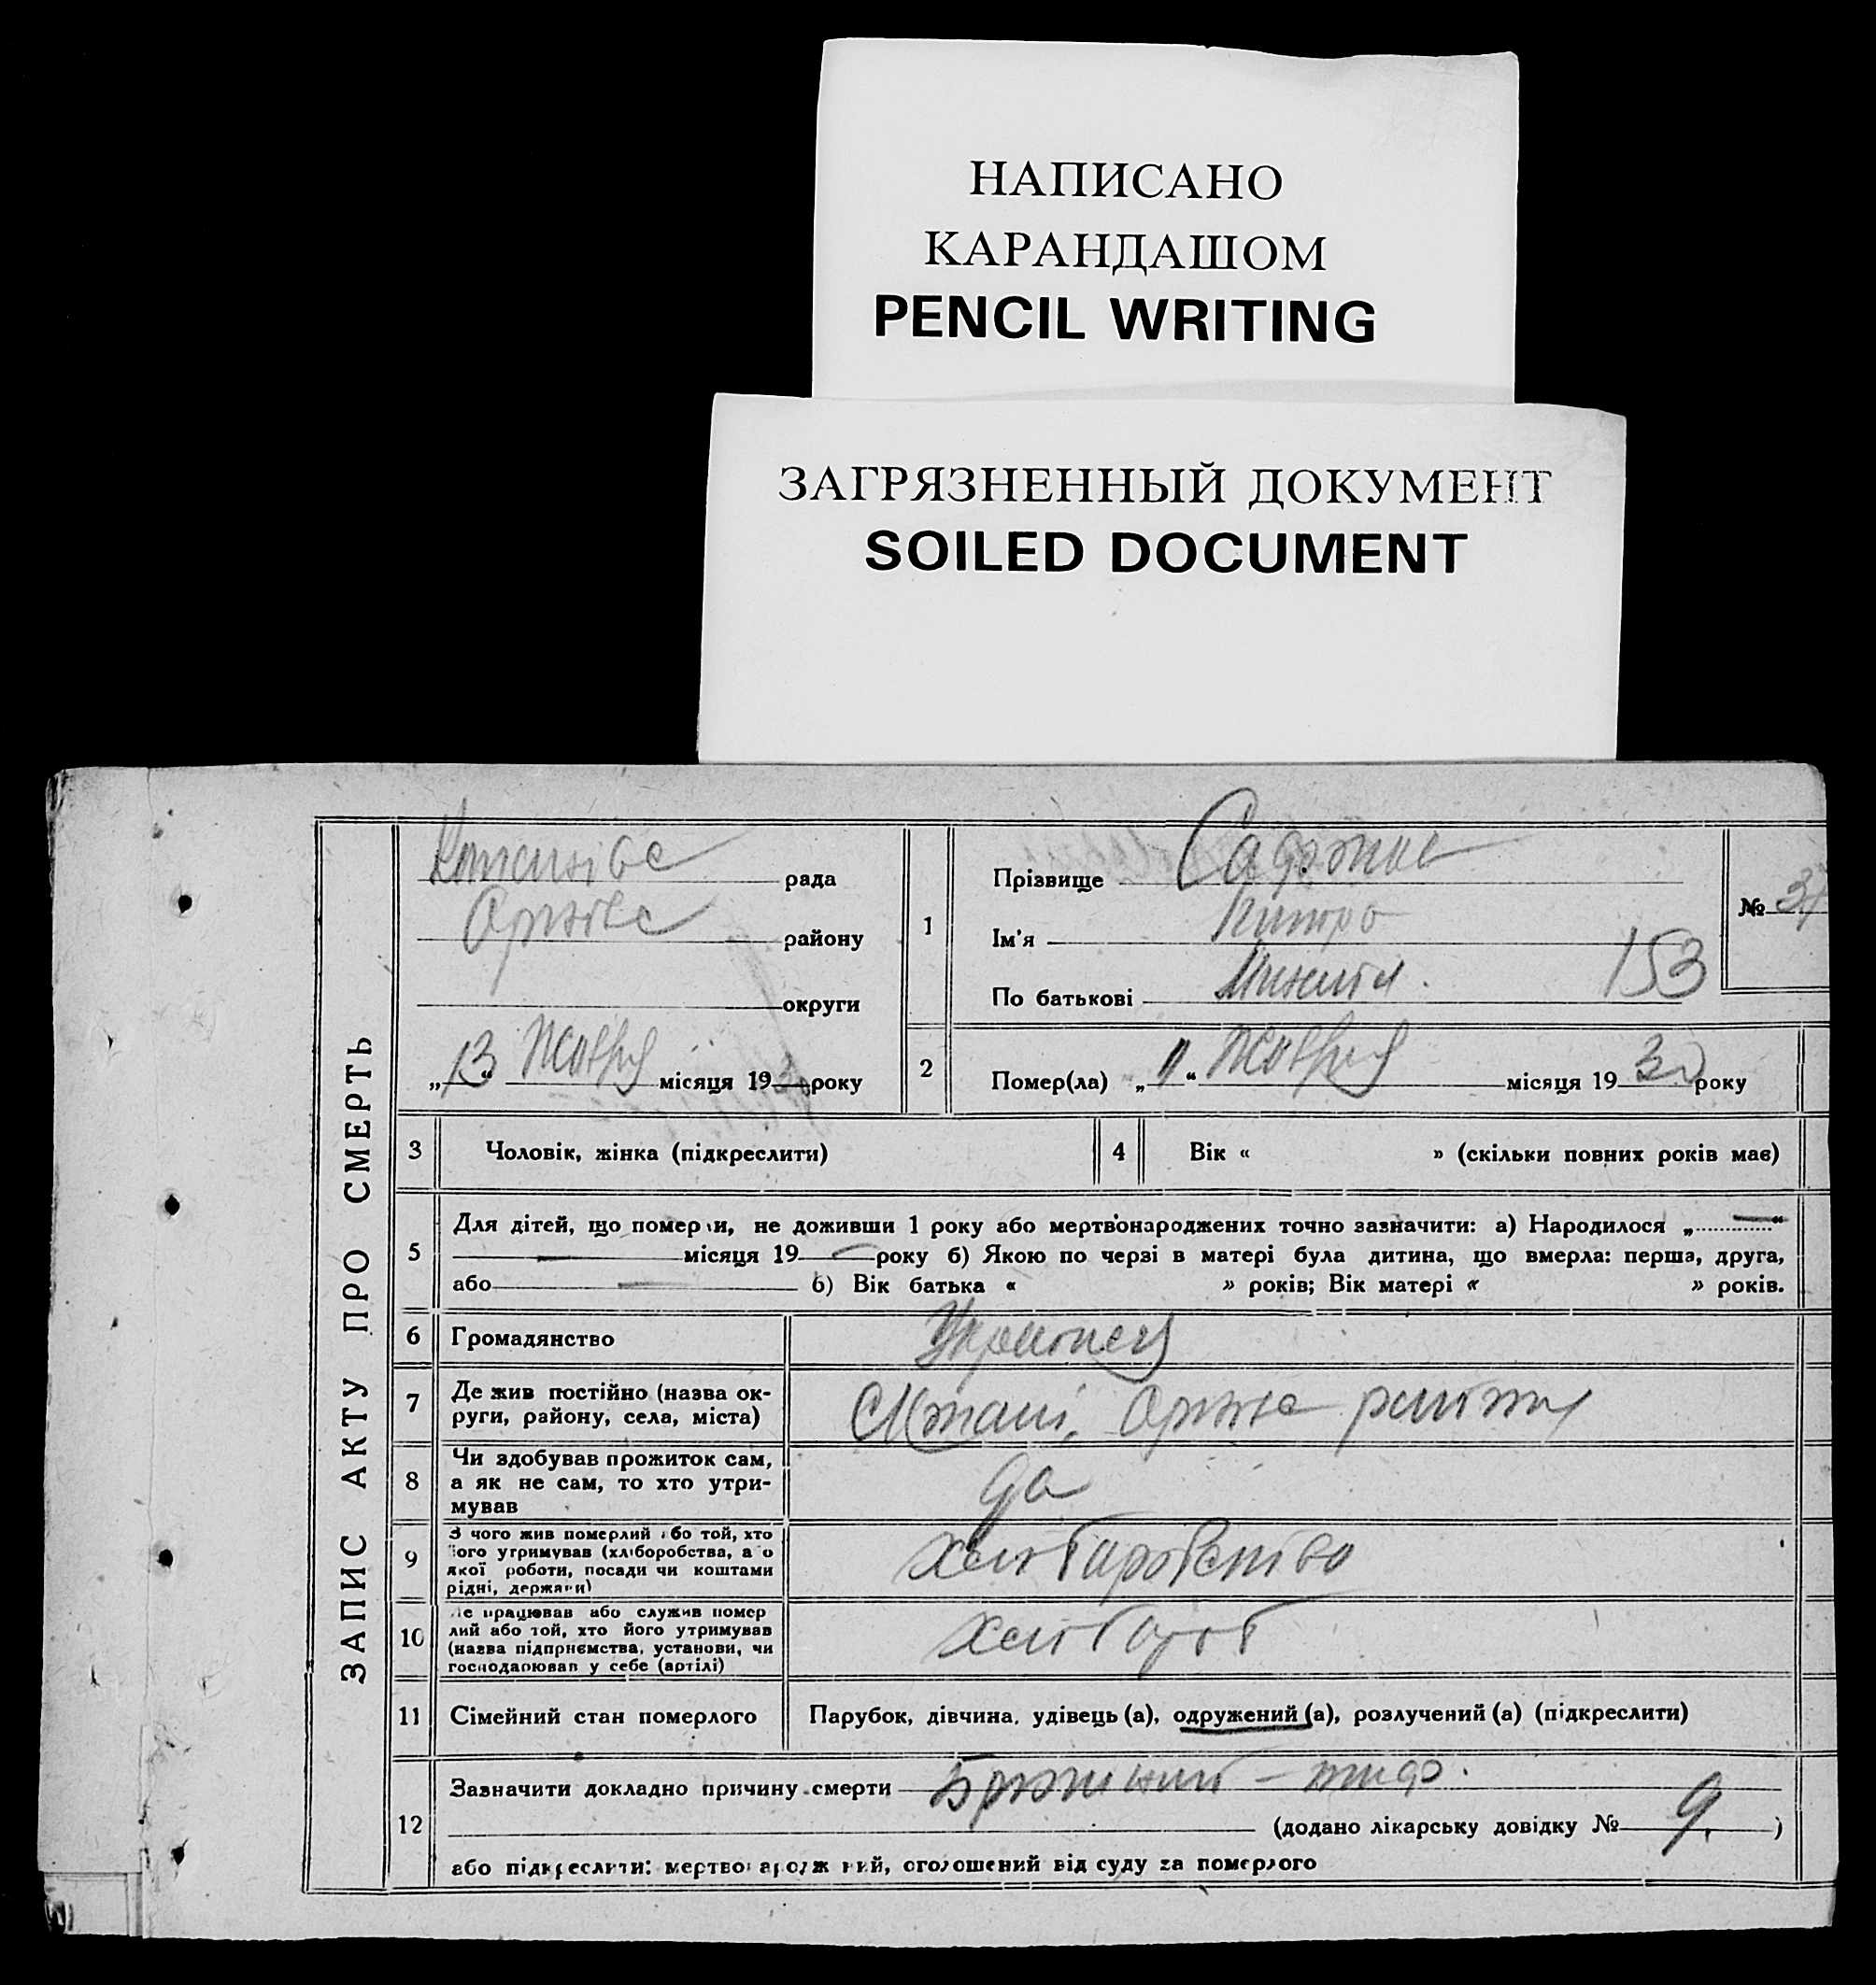 НАПИСАНО
КАРАНДАШОМ
PENCIL WRITING
ЗАГРЯЗНЕННЫЙ ДОКУМЕНТ
SOILED DOCUMENT
ЗАПИС АКТУ ПРО СМЕРТЬ
рада
району
округи
„13“ Жовтня місяця 1930 року
1
Прізвище
Ім'я Петро
По батькові
153
№ 37
2
Помер(ла) „11“ Жовтня місяця 1930 року
3 Чоловік, жінка (підкреслити)
4 Вік « » (скільки повних років має)
5
Для дітей, що померли, не доживши 1 року або мертвонароджених точно зазначити: а) Народилося „—“
— місяця 19 — року б) Якою по черзі в матері була дитина, що вмерла: перша, друга,
або — 6) Вік батька « » років; Вік матері « » років.
6 Громадянство Украінець
7 Де жив постійно (назва ок-
руги, району, села, міста)
8 Чи здобував прожиток сам,
а як не сам, то хто утри-
мував
да
9 З чого жив померлий або той, хто
його утримував (хліборобства, а о
якої роботи, посади чи коштами
рідні, держави)
10 Де працював або служив помер
лий або той, хто його утримував
(назва підприємства, установи, чи
господарював у себе (артілі)
11 Сімейний стан померлого Парубок, дівчина, удівець (а), одружений (а), розлучений (а) (підкреслити)
12
Зазначити докладно причину смерти Брюшний - тиф.
(додано лікарську довідку № 9. )
або підкреслити: мертвонароджений, оголошений від суду за померлого